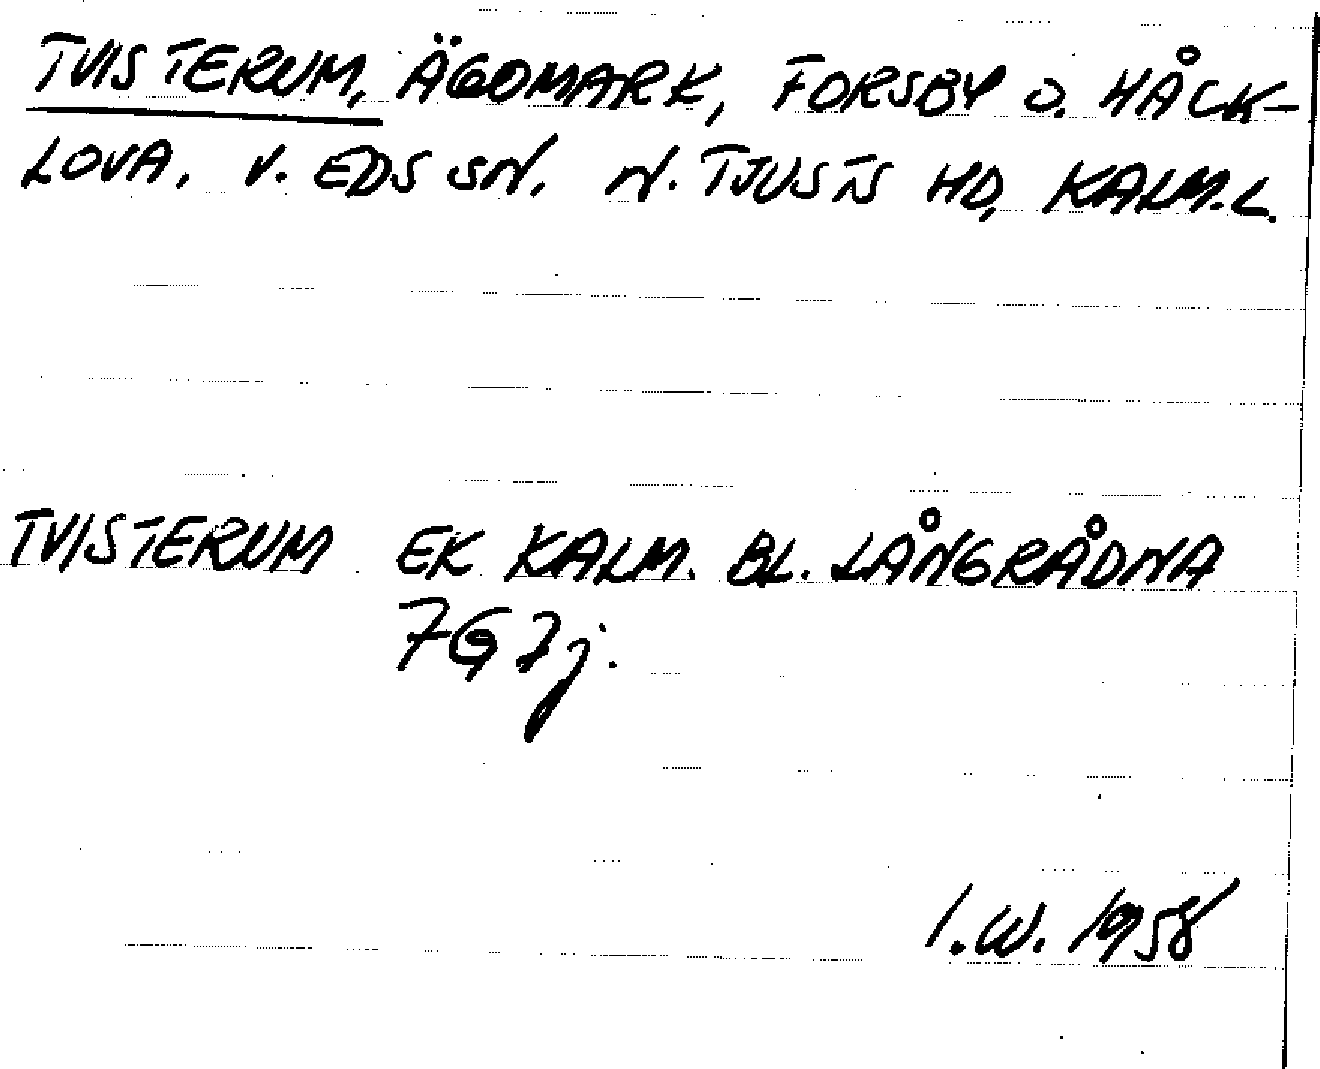 TVISTERUM, ÄGOMARK, FORSBY O. HÅCK-
LOVA, V. EDS SN. N. TJUSTS HD, KALM.L.
TVISTERUM EK KALM. BL. LÅNGRÅDNA
7G7j.
I.W. 1958